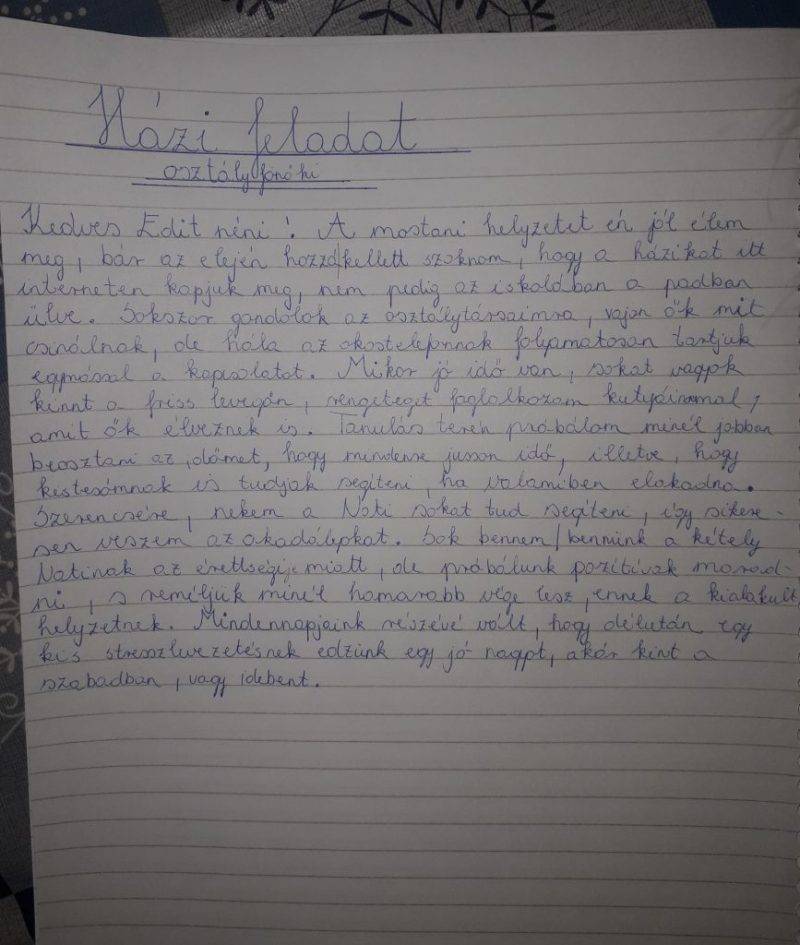 Házi feladat
osztályfőnöki
Kedves Edit néni! A mostani helyzetet én jól élem
meg, bár az elején hozzá kellett szoknom, hogy a házikat itt
interneten kapjuk meg, nem pedig az iskolában a padban
ülve. Sokszor gondolok az osztálytársaimra, vajon ők mit
csinálnak, de hála az okostelefonnak folyamatosan tartjuk
egymással a kapcsolatot. Mikor jó idő van, sokat vagyok
kinnt a friss levegőn, rengeteget foglalkozom kutyáinmal,
amit ők élveznek is. Tanulás terén próbálom minél jobban
beosztani az időmet, hogy mindenre jusson idő, illetve, hogy
kistesómnak is tudjak segíteni, ha valamiben elakadna.
Szerencsére, nekem a Nati sokat tud segíteni, így sikere-
sen veszem az akadályokat. Sok bennem/bennünk a kétely
Natinak az érettségije miatt, de próbálunk pozitívak marad-
ni, s reméljük minél hamarabb vége lesz, ennek a kialakult
helyzetnek. Mindennapjaink részévé vált, hogy délután egy
kis stresszlevezetésnek edzünk egy jó nagyot, akár kint a
szabadban, vagy idebent.